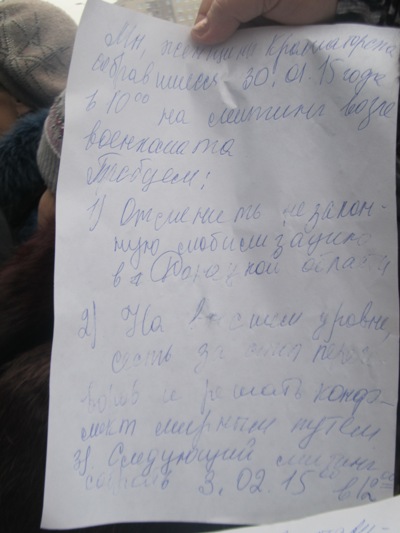 Мы, женщины Краматорска
собравшиеся 30.01.15 года
в 10⁰⁰ на митинг возле
военкомата
Требуем:
1) Отменить незакон-
ную мобилизацию
в Донецкой области
2) На высшем уровне,
сесть за стол пере-
воров и решать конф-
ликт мирным путем
3) Следующий митинг
3.02.15